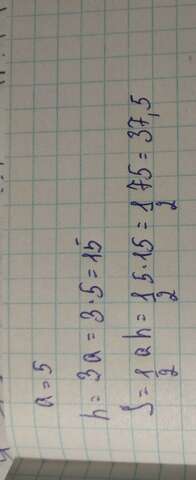 a = 5
h = 3a = 3 · 5 = 15
S = 1/2 ah = 1/2 5 · 15 = 1/2 75 = 37,5